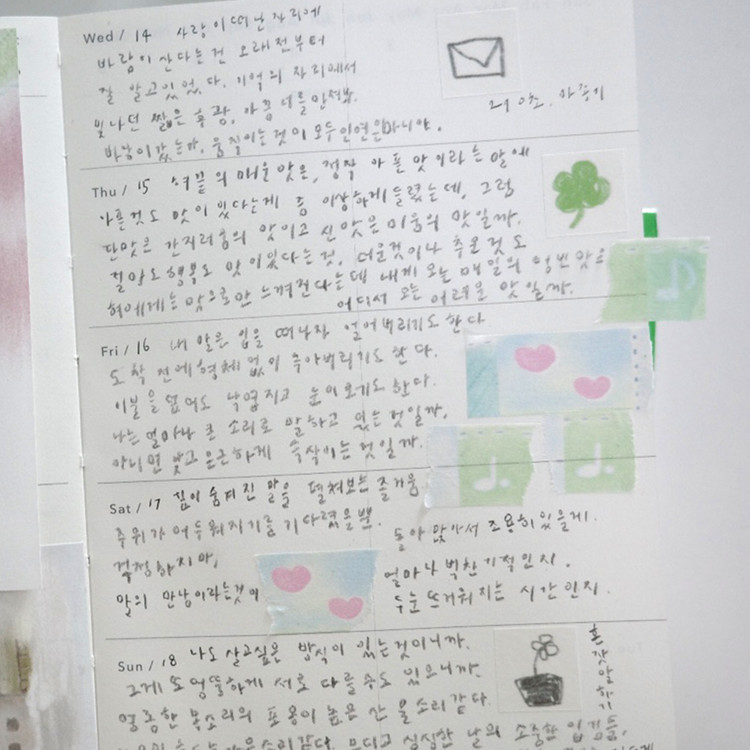 Wed / 14 사랑이 떠난 자리에
바람이 산다는 건 오래전부터
잘 알고 있었다. 기억의 자리에서
빛나던 짧은 후광, 아픔
바람이 갔는가, 움직이는 것이 모두 인연은 아니야.
Thu / 15 혀끝의 매운 맛은, 정작 아픈 맛이라는 말에
다른 것도 맛이 있다는게 좀 이상하게 들렸는데, 그럼
단맛은 간지러움의 맛이고 신맛은 미움의 맛일까.
절망도 행복도 맛이 있다는 것, 더운것이나 추운 것도
혀에게는 맛으로만 느껴진다는데 내게 오는 매일의 텅빈 맛은
어디서 오는 어려운 맛일까.
Fri / 16 내 말은 입을 떠나자 얼어버리기도 한다
도착 전에 형체 없이 녹아버리기도 한다.
이불을 덮어도 낙엽지고 눈이 오기도 한다.
나는 얼마나 큰 소리로 말하고 있는 것일까,
아니면 낮고 은근하게 속삭이는 것일까.
Sat / 17 깊이 숨겨진 말을 펼쳐보는 즐거움
주위가 어두워지기를 기다렸을 뿐.
돌아 앉아서 조용히 있을게.
걱정하지마,
얼마나 벅찬 기적인지.
말의 만남이라는것이
두 눈 뜨거워지는 시간인지.
Sun / 18 나도 살고싶은 방식이 있는것이니까.
그게 또 엉뚱하게 서로 다를 수도 있으니까.
영롱한 목소리의 포옹이 높은 산 울소리 같다.
혼잣말하기
같은 소리 같다. 무디고 심심한 날의 소중한 입김들,